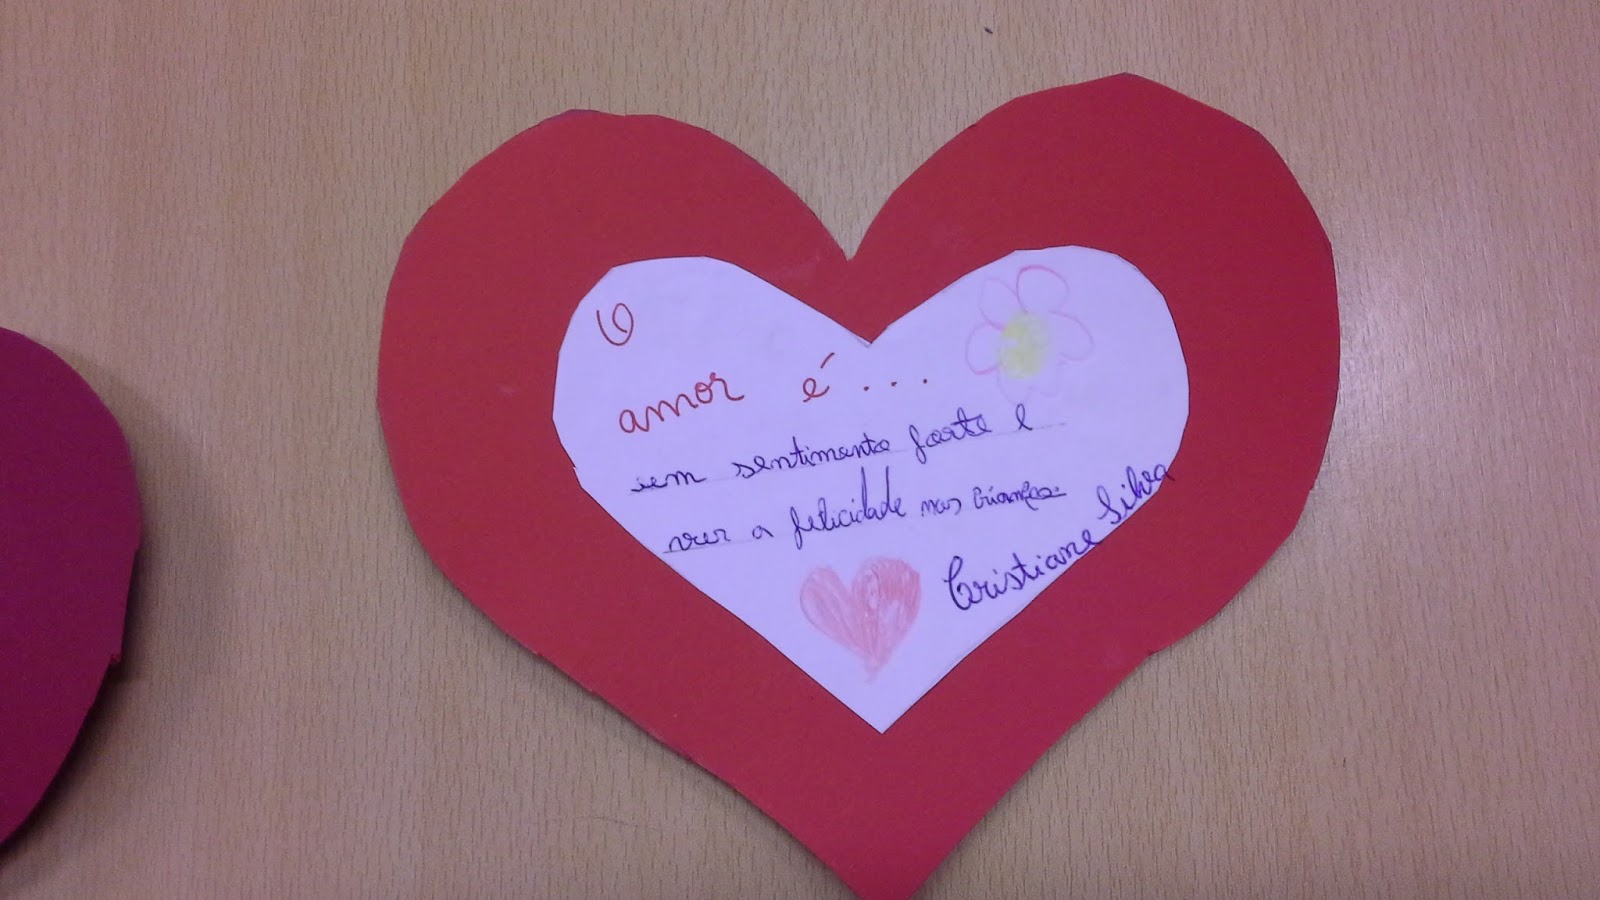 O
amor é...
um sentimento forte e
ver a felicidade nas crianças.
Cristiane Silva